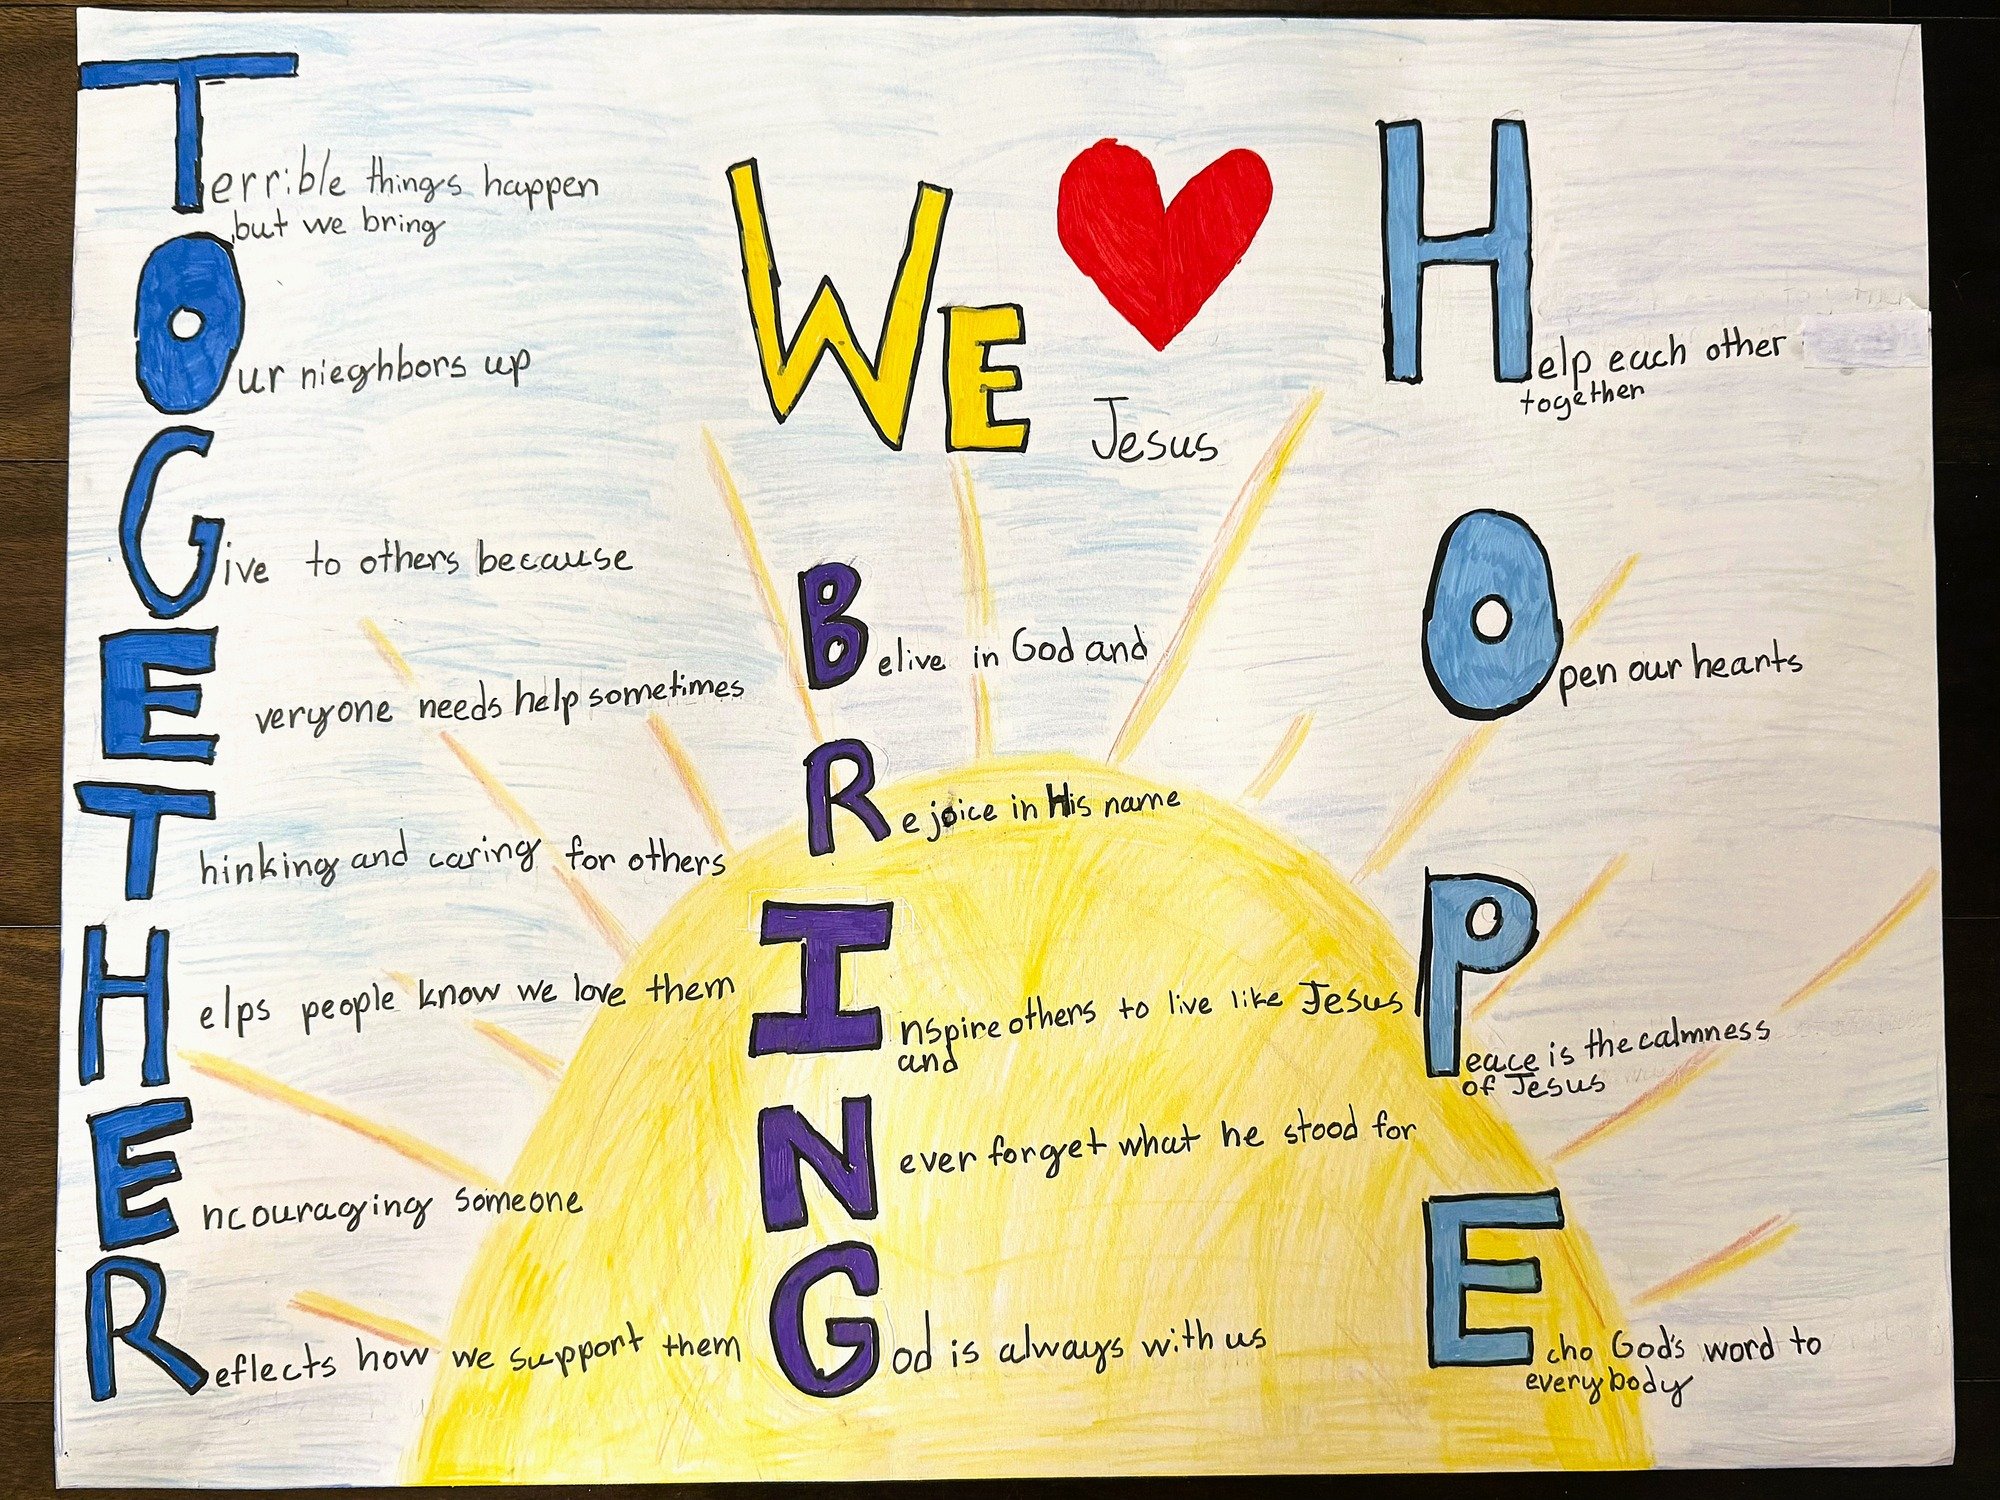 Terrible things happen
but we bring
Our nieghbors up
Give to others because
Everyone needs help sometimes
Thinking and caring for others
Helps people know we love them
Encouraging someone
Reflects how we support them
WE
Jesus
Belive in God and
Rejoice in His name
Inspire others to live like Jesus
and
Never forget what he stood for
God is always with us
Help each other
together
Open our hearts
Peace is the calmness
of Jesus
Echo God's word to
everybody